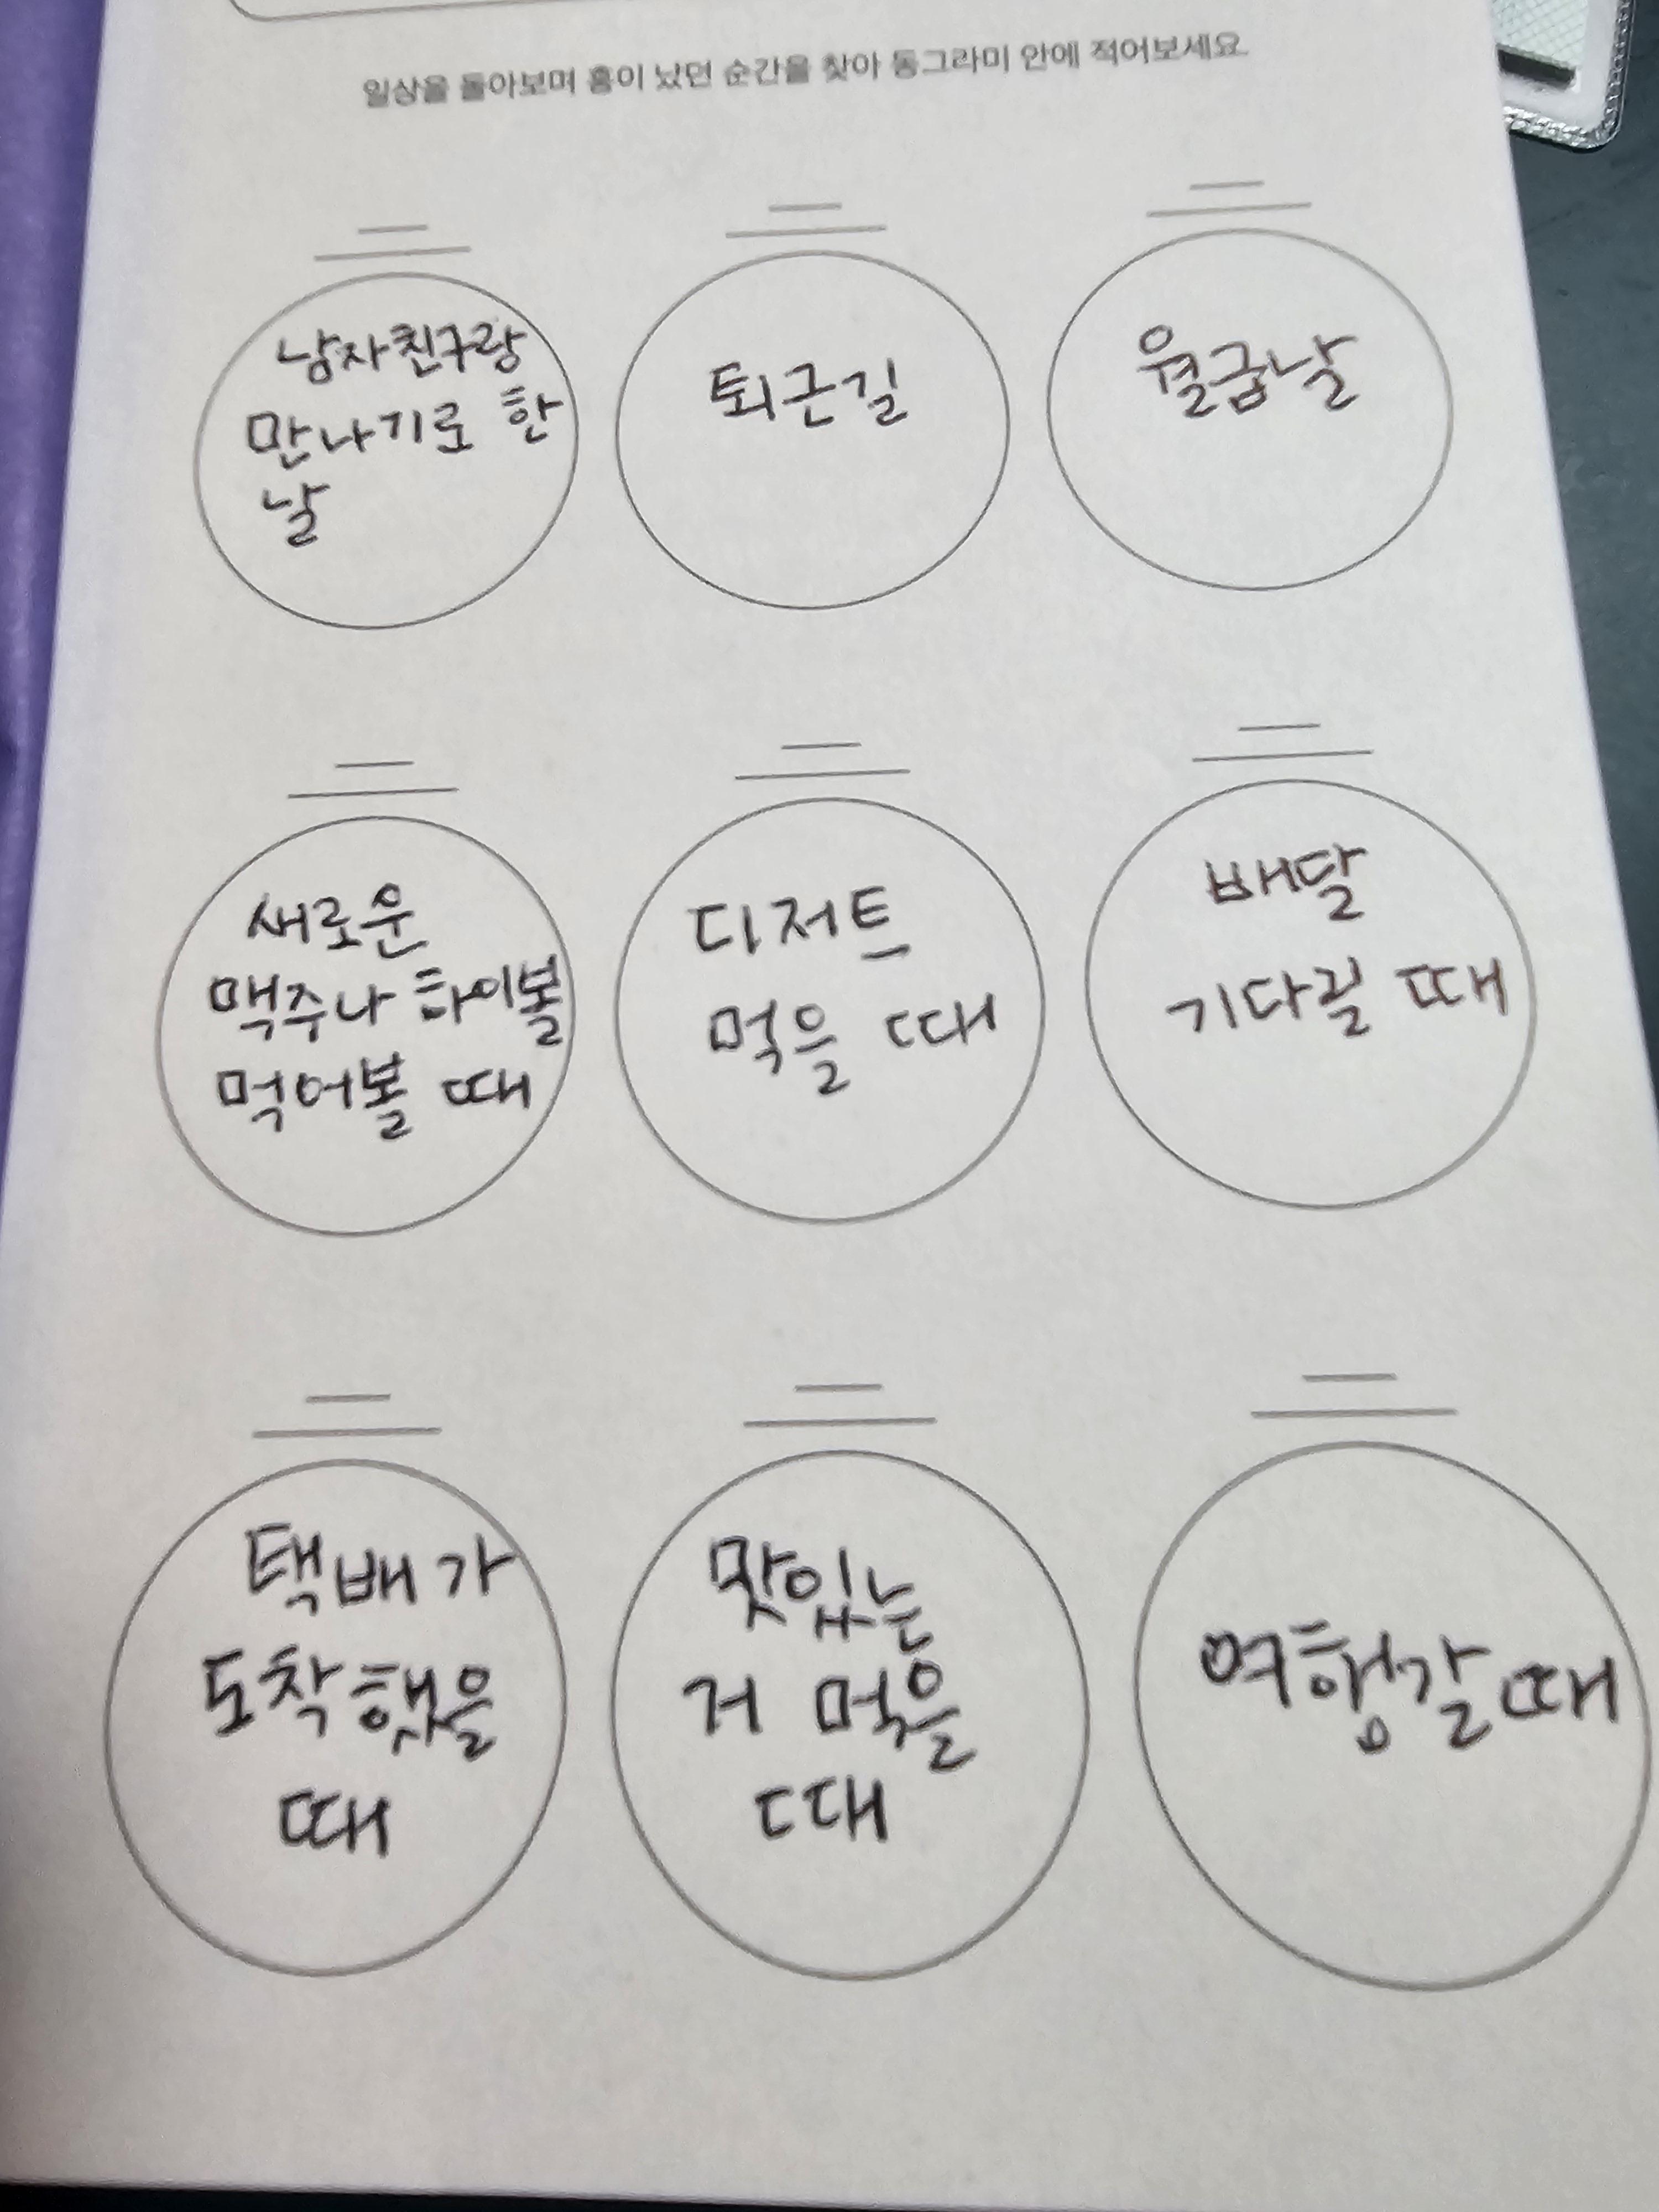 일상을 돌아보며 흥이 났던 순간을 찾아 동그라미 안에 적어보세요.
남자친구랑
만나기로 한
날
퇴근길
월급날
새로운
맥주나 하이볼
먹어볼 때
디저트
먹을 때
배달
기다릴 때
택배가
도착했을
때
맛있는
거 먹을
때
여행갈 때